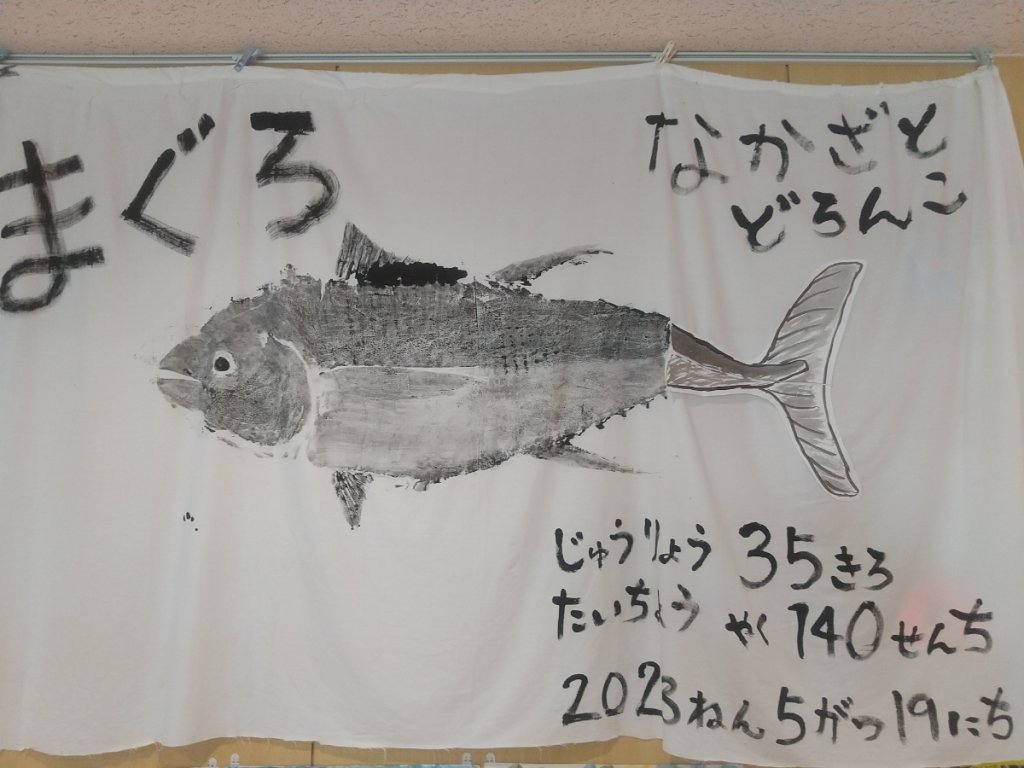 まぐろ
なかざと
どろんこ
じゅうりょう 35きろ
たいちょう やく 140せんち
2023ねん 5がつ 19にち